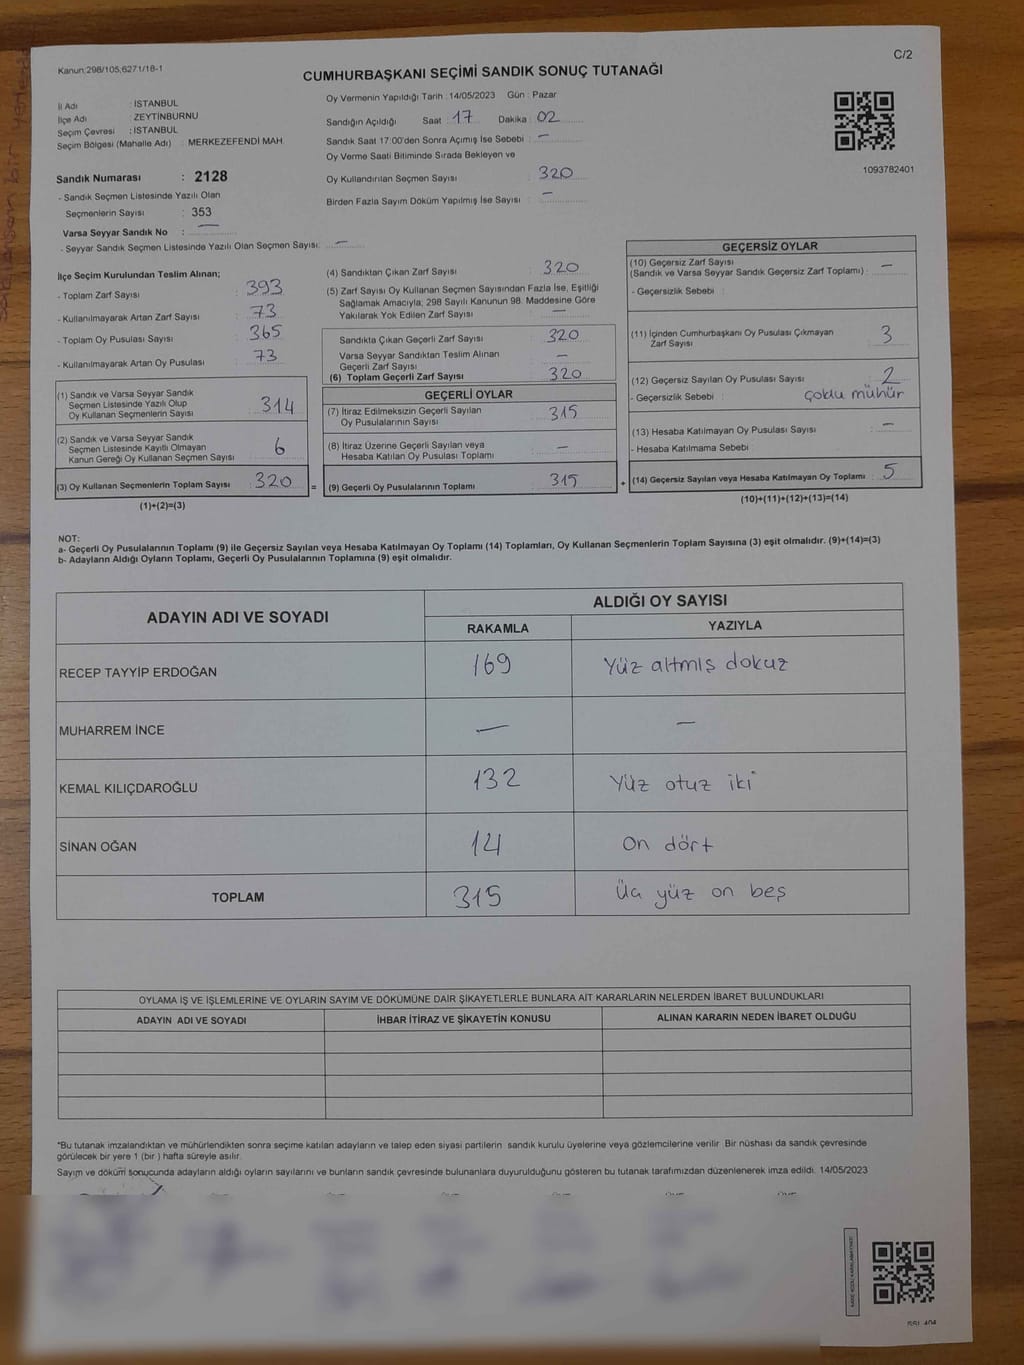 C/2
Kanun:298/105,6271/18-1
CUMHURBAŞKANI SEÇİMİ SANDIK SONUÇ TUTANAĞI
İl Adı : İSTANBUL
İlçe Adı : ZEYTİNBURNU
Seçim Çevresi : İSTANBUL
Seçim Bölgesi (Mahalle Adı) : MERKEZEFENDİ MAH.
Sandık Numarası : 2128
- Sandık Seçmen Listesinde Yazılı Olan
Seçmenlerin Sayısı : 353
Varsa Seyyar Sandık No : —
- Seyyar Sandık Seçmen Listesinde Yazılı Olan Seçmen Sayısı: —
Oy Vermenin Yapıldığı Tarih : 14/05/2023 Gün : Pazar
Sandığın Açıldığı Saat : 17 Dakika : 02
Sandık Saat 17:00'den Sonra Açımış İse Sebebi : —
Oy Verme Saati Bitiminde Sırada Bekleyen ve
Oy Kullandırılan Seçmen Sayısı : 320
Birden Fazla Sayım Döküm Yapılmış İse Sayısı : —
1093782401
İlçe Seçim Kurulundan Teslim Alınan;
- Toplam Zarf Sayısı : 393
- Kullanılmayarak Artan Zarf Sayısı : 73
- Toplam Oy Pusulası Sayısı : 365
- Kullanılmayarak Artan Oy Pusulası : 73
(1) Sandık ve Varsa Seyyar Sandık
Seçmen Listesinde Yazılı Olup
Oy Kullanan Seçmenlerin Sayısı : 314
(2) Sandık ve Varsa Seyyar Sandık
Seçmen Listesinde Kayıtlı Olmayan
Kanun Gereği Oy Kullanan Seçmen Sayısı : 6
(3) Oy Kullanan Seçmenlerin Toplam Sayısı : 320
(1)+(2)=(3)
(4) Sandıktan Çıkan Zarf Sayısı : 320
(5) Zarf Sayısı Oy Kullanan Seçmen Sayısından Fazla İse, Eşitliği
Sağlamak Amacıyla; 298 Sayılı Kanunun 98. Maddesine Göre
Yakılarak Yok Edilen Zarf Sayısı : —
Sandıkta Çıkan Geçerli Zarf Sayısı : 320
Varsa Seyyar Sandıktan Teslim Alınan
Geçerli Zarf Sayısı : —
(6) Toplam Geçerli Zarf Sayısı : 320
GEÇERLİ OYLAR
(7) İtiraz Edilmeksizin Geçerli Sayılan
Oy Pusulalarının Sayısı : 315
(8) İtiraz Üzerine Geçerli Sayılan veya
Hesaba Katılan Oy Pusulası Toplamı : —
= (9) Geçerli Oy Pusulalarının Toplamı : 315
GEÇERSİZ OYLAR
(10) Geçersiz Zarf Sayısı
(Sandık ve Varsa Seyyar Sandık Geçersiz Zarf Toplamı) : —
- Geçersizlik Sebebi :
(11) İçinden Cumhurbaşkanı Oy Pusulası Çıkmayan
Zarf Sayısı : 3
(12) Geçersiz Sayılan Oy Pusulası Sayısı : 2
- Geçersizlik Sebebi : Çoklu mühür
(13) Hesaba Katılmayan Oy Pusulası Sayısı : —
- Hesaba Katılmama Sebebi
+ (14) Geçersiz Sayılan veya Hesaba Katılmayan Oy Toplamı : 5
(10)+(11)+(12)+(13)=(14)
NOT:
a- Geçerli Oy Pusulalarının Toplamı (9) ile Geçersiz Sayılan veya Hesaba Katılmayan Oy Toplamı (14) Toplamları, Oy Kullanan Seçmenlerin Toplam Sayısına (3) eşit olmalıdır. (9)+(14)=(3)
b- Adayların Aldığı Oyların Toplamı, Geçerli Oy Pusulalarının Toplamına (9) eşit olmalıdır.
ADAYIN ADI VE SOYADI
ALDIĞI OY SAYISI
RAKAMLA YAZIYLA
RECEP TAYYİP ERDOĞAN 169 Yüz altmış dokuz
MUHARREM İNCE — —
KEMAL KILIÇDAROĞLU 132 Yüz otuz iki
SİNAN OĞAN 14 On dört
TOPLAM 315 Üç yüz on beş
OYLAMA İŞ VE İŞLEMLERİNE VE OYLARIN SAYIM VE DÖKÜMÜNE DAİR ŞİKAYETLERLE BUNLARA AİT KARARLARIN NELERDEN İBARET BULUNDUKLARI
ADAYIN ADI VE SOYADI İHBAR İTİRAZ VE ŞİKAYETİN KONUSU ALINAN KARARIN NEDEN İBARET OLDUĞU
*Bu tutanak imzalandıktan ve mühürlendikten sonra seçime katılan adayların ve talep eden siyasi partilerin sandık kurulu üyelerine veya gözlemcilerine verilir. Bir nüshası da sandık çevresinde
görülecek bir yere 1 (bir) hafta süreyle asılır.
Sayım ve döküm sonucunda adayların aldığı oyların sayılarını ve bunların sandık çevresinde bulunanlara duyurulduğunu gösteren bu tutanak tarafımızdan düzenlenerek imza edildi. 14/05/2023